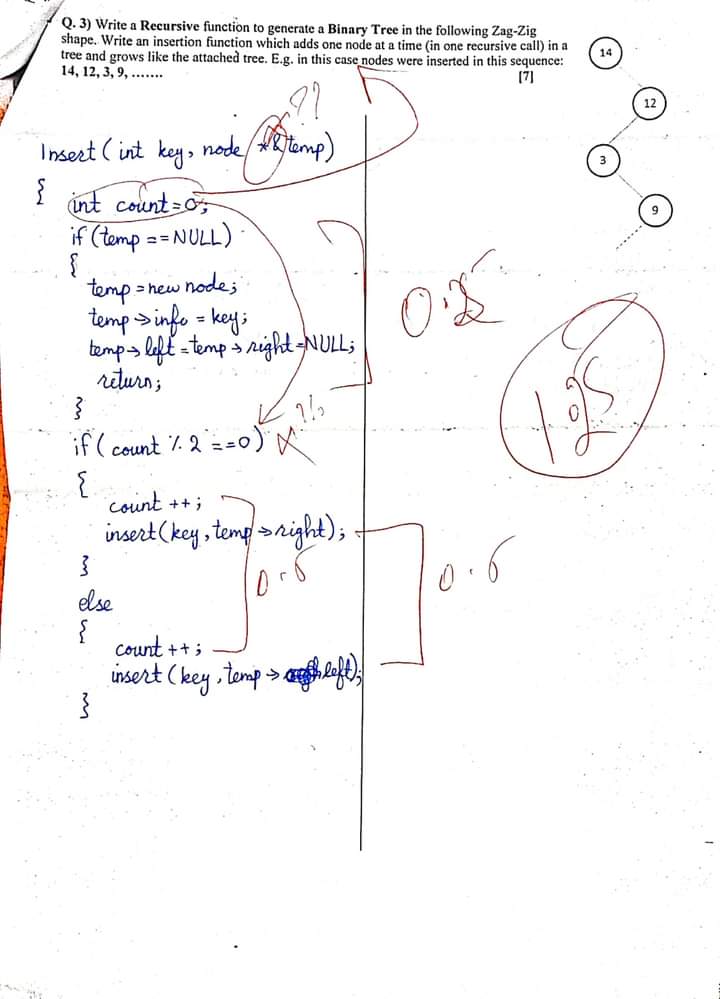 Q. 3) Write a Recursive function to generate a Binary Tree in the following Zag-Zig
shape. Write an insertion function which adds one node at a time (in one recursive call) in a
tree and grows like the attached tree. E.g. in this case nodes were inserted in this sequence:
14, 12, 3, 9, .......
[7]
14
12
3
9
??
Insert (int key, node *&temp)
{
int count=0;
if (temp == NULL)
{
temp = new node;
temp->info = key;
temp->left = temp->right=NULL;
return;
}
if (count % 2 ==0)
{
count ++;
insert(key, temp->right);
}
else
{
count ++;
insert (key, temp-> left);
}
0.5
0.5